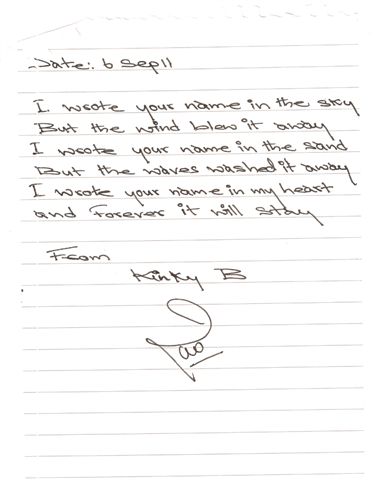 Date: 6 Sep11
I wrote your name in the sky
But the wind blew it away
I wrote your name in the sand
But the waves washed it away
I wrote your name in my heart
and Forever it will stay
From
Kinky B